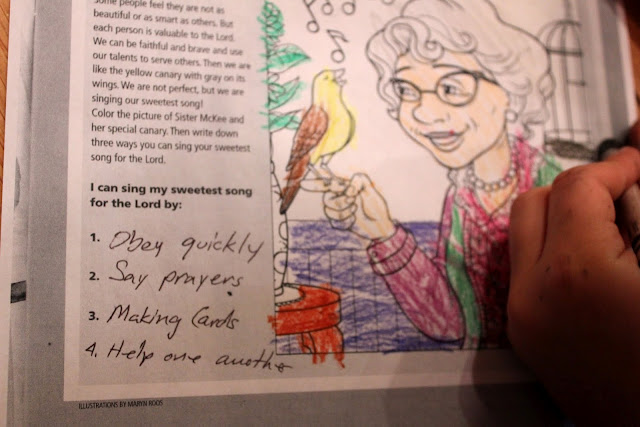 some people feel they are not as
beautiful or as smart as others. But
each person is valuable to the Lord.
We can be faithful and brave and use
our talents to serve others. Then we are
like the yellow canary with gray on its
wings. We are not perfect, but we are
singing our sweetest song!
Color the picture of Sister McKee and
her special canary. Then write down
three ways you can sing your sweetest
song for the Lord.
I can sing my sweetest song
for the Lord by:
1. Obey quickly
2. Say prayers
3. Making Cards
4. Help one another
ILLUSTRATIONS BY MARYN ROOS